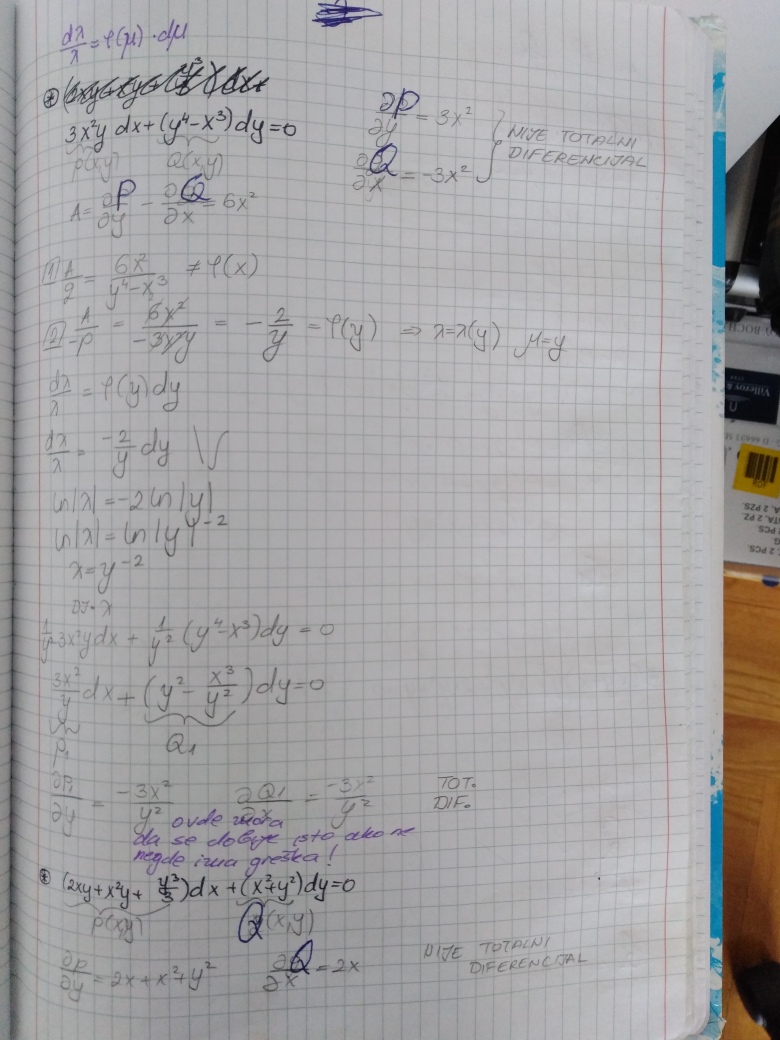 dλ/λ = φ(μ)·dμ
3x²y dx + (y⁴-x³)dy = 0
P(x,y) Q(x,y)
∂P/∂y = 3x²
∂Q/∂x = -3x²
NIJE TOTALNI
DIFERENCIJAL
A = ∂P/∂y - ∂Q/∂x = 6x²
1 A/Q = 6x²/(y⁴-x³) ≠ φ(x)
2 A/-P = 6x²/-3x²y = -2/y = φ(y) ⇒ λ=λ(y) μ=y
dλ/λ = φ(y)dy
dλ/λ = -2/y dy \∫
ln|λ| = -2 ln|y|
ln|λ| = ln|y|⁻²
λ = y⁻²
DJ·λ
1/y² 3x²y dx + 1/y² (y⁴-x³)dy = 0
3x²/y dx + (y² - x³/y²)dy = 0
P₁ Q₁
∂P₁/∂y = -3x²/y² ∂Q₁/∂x = -3x²/y² TOT. DIF.
ovde mora
da se dobije isto ako ne
negde ima greška!
(2xy + x²y + y³/3)dx + (x²+y²)dy = 0
P(x,y) Q(x,y)
∂P/∂y = 2x + x² + y² ∂Q/∂x = 2x
NIJE TOTALNI
DIFERENCIJAL
Villeroy &